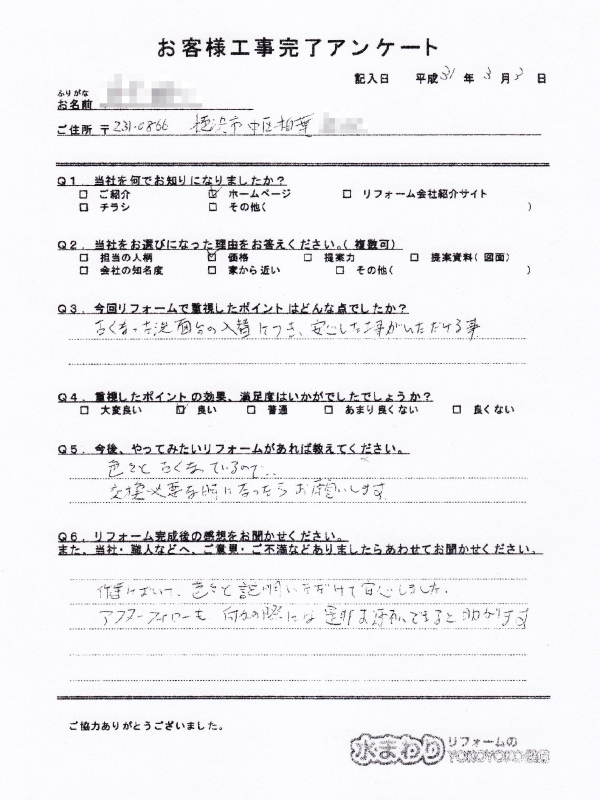 お客様工事完了アンケート
記入日 平成 31 年 3 月 3 日
ふりがな
お名前
ご住所 〒231-0866 横浜市中区柏葉
Q1. 当社を何でお知りになりましたか?
□ ご紹介 ☑ ホームページ □ リフォーム会社紹介サイト
□ チラシ □ その他( )
Q2. 当社をお選びになった理由をお答えください。(複数可)
□ 担当の人柄 ☑ 価格 □ 提案力 □ 提案資料(図面)
□ 会社の知名度 □ 家から近い □ その他( )
Q3. 今回リフォームで重視したポイントはどんな点でしたか?
古くなった洗面台の入替につき、安心した工事がいただける事
Q4. 重視したポイントの効果、満足度はいかがでしたでしょうか?
□ 大変良い ☑ 良い □ 普通 □ あまり良くない □ 良くない
Q5. 今後、やってみたいリフォームがあれば教えてください。
色々と古くなっているので..
交換必要な時になったらお願いします
Q6. リフォーム完成後の感想をお聞かせください。
また、当社・職人などへ、ご意見・ご不満などありましたらあわせてお聞かせください。
作業において、色々と説明いただけて安心しました。
アフターフォローも 何かの際には是非お願いできると助かります
ご協力ありがとうございました。
水まわり リフォームの
YOKOYOKO設備